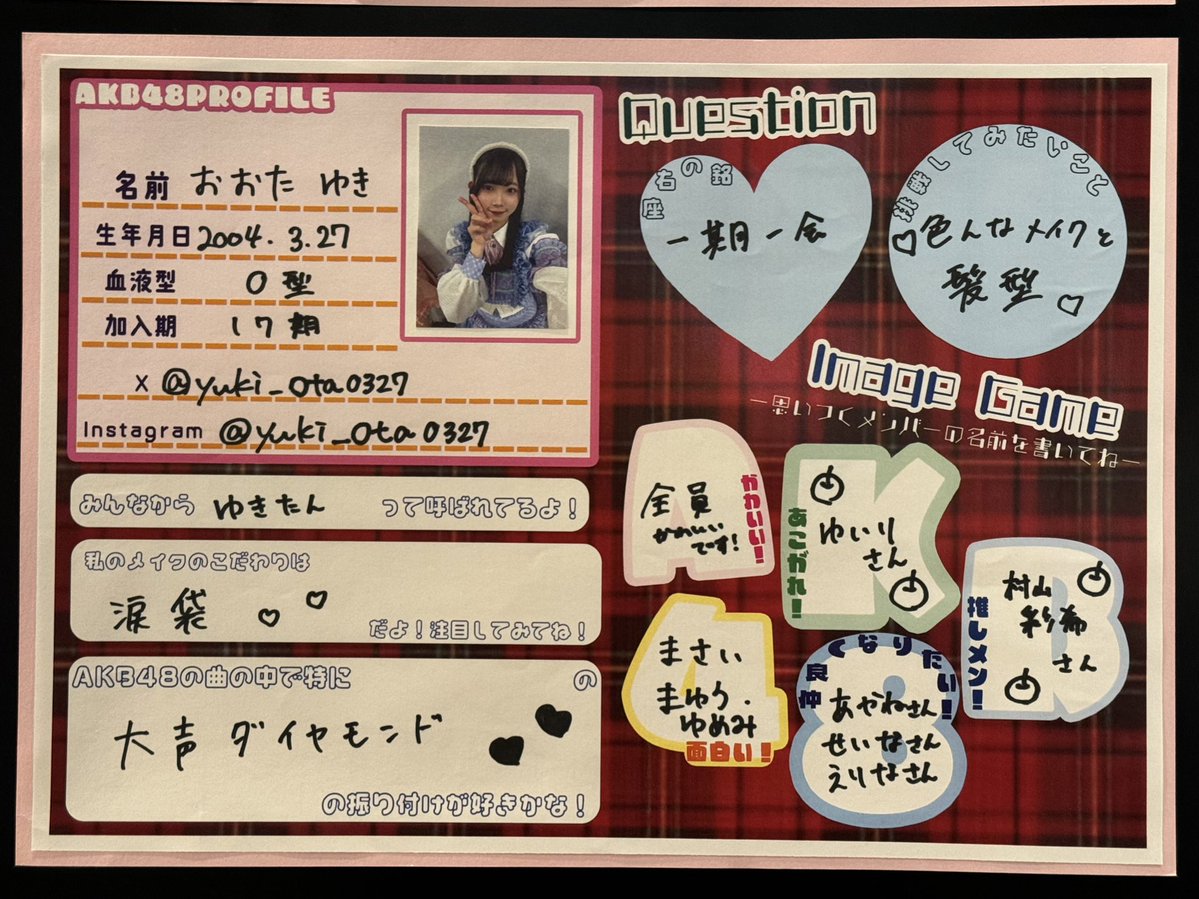 AKB48PROFILE
名前 おおた ゆき
生年月日 2004.3.27
血液型 O型
加入期 17期
X @yuki_ota0327
Instagram @yuki_ota0327
みんなから ゆきたん って呼ばれてるよ！
私のメイクのこだわりは
涙袋
だよ！注目してみてね！
AKB48の曲の中で特に
大声ダイヤモンド
の
の振り付けが好きかな！
Question
座右の銘
一期一会
挑戦してみたいこと
色んなメイクと
髪型
Image Game
ー思いつくメンバーの名前を書いてねー
かわいい！
全員
かわいい
です！
あこがれ！
ゆいり
さん
推しメン！
村山
彩希
さん
まさい
まゆう・
ゆめみ
面白い！
仲良くなりたい！
あやねさん
せいなさん
えりなさん